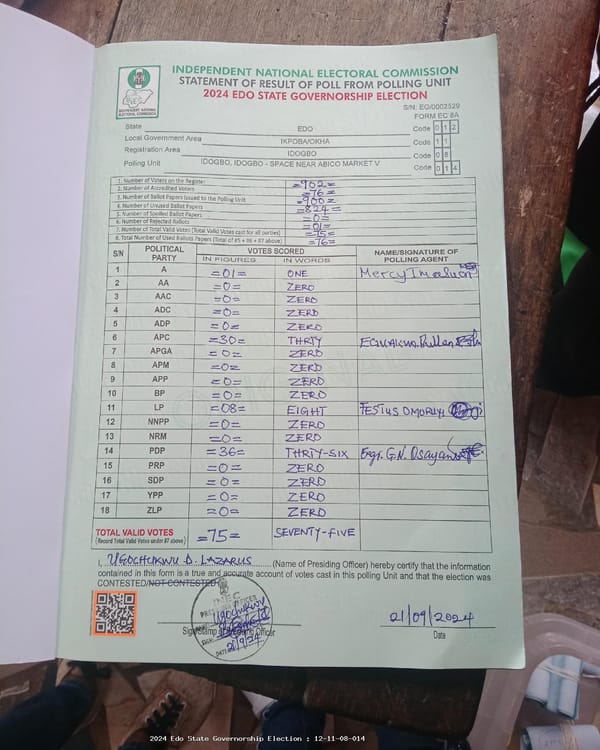 INDEPENDENT NATIONAL ELECTORAL COMMISSION
STATEMENT OF RESULT OF POLL FROM POLLING UNIT
2024 EDO STATE GOVERNORSHIP ELECTION
INDEPENDENT NATIONAL ELECTORAL COMMISSION
S/N: EG/0002529
FORM EC 8A
State EDO Code 0 1 2
Local Government Area IKPOBA/OKHA Code 1 1
Registration Area IDOGBO Code 0 8
Polling Unit IDOGBO, IDOGBO - SPACE NEAR ABICO MARKET V Code 0 1 4
1. Number of Voters on the Register =902=
2. Number of Accredited Voters =76=
3. Number of Ballot Papers Issued to the Polling Unit =900=
4. Number of Unused Ballot Papers =824=
5. Number of Spoiled Ballot Papers =0=
6. Number of Rejected Ballots =01=
7. Number of Total Valid Votes (Total Valid Votes cast for all parties) =75=
8. Total Number of Used Ballots Papers (Total of #5 + #6 + #7 above) =76=
S/N POLITICAL PARTY VOTES SCORED NAME/SIGNATURE OF POLLING AGENT
IN FIGURES IN WORDS
1 A =01= ONE Mercy
2 AA =0= ZERO
3 AAC =0= ZERO
4 ADC =0= ZERO
5 ADP =0= ZERO
6 APC =30= THRTY
7 APGA =0= ZERO
8 APM =0= ZERO
9 APP =0= ZERO
10 BP =0= ZERO
11 LP =08= EIGHT FESTUS
12 NNPP =0= ZERO
13 NRM =0= ZERO
14 PDP =36= THRTY-SIX Engr. G.N.
15 PRP =0= ZERO
16 SDP =0= ZERO
17 YPP =0= ZERO
18 ZLP =0= ZERO
TOTAL VALID VOTES =75= SEVENTY-FIVE
(Record Total Valid Votes under #7 above)
I, UGOCHUKWU D. LAZARUS (Name of Presiding Officer) hereby certify that the information
contained in this form is a true and accurate account of votes cast in this polling Unit and that the election was
CONTESTED/NOT CONTESTED
INEC
PRESIDING OFFICER
Ugochukwu
21/9/24
21/09/2024
Sign/Stamp of Presiding Officer Date
2024 Edo State Governorship Election : 12-11-08-014